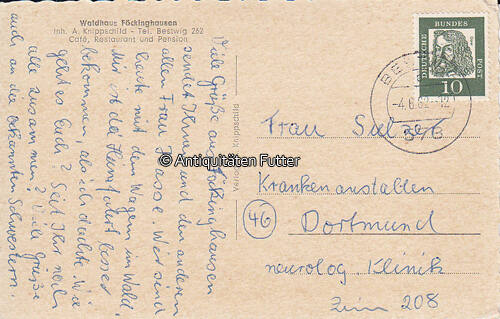 Waldhaus Föckinghausen
Inh. A. Knippschild - Tel. Bestwig 262
Café, Restaurant und Pension
Viele Grüße aus Föckinghausen
sendet Ihnen und den anderen
allen Frau Hasse. Wir sind
heute mit dem Wagen im Wald.
Mir ist die Heimfahrt besser
bekommen, als ich dachte. Wie
geht es Euch? Seid Ihr noch
alle zusammen? Viele Grüße
auch an die bekannten Schwestern.
Verlag Knippschild
DEUTSCHE BUNDES POST
10
BE
-4.6.62-12
Frau Sulzer
Krankenanstalten
(46) Dortmund
neurolog. Klinik
Zim 208
© Antiquitäten Futter